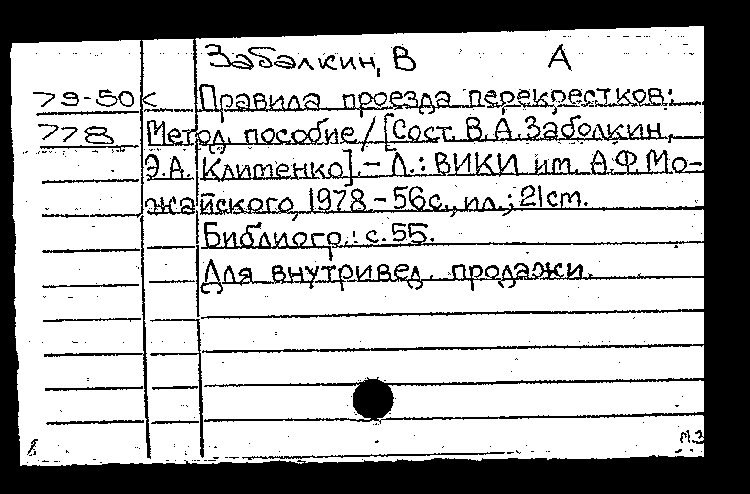 Забалкин, В А
79-50< Правила проезда перекрестков:
778 Метод. пособие / [Сост. В. А. Заболкин,
Э.А. Клименко]. - Л.: ВИКИ им. А.Ф. Мо-
жайского, 1978 - 56с., ил.; 21 см.
Библиогр.: с. 55.
Для внутривед. продажи.